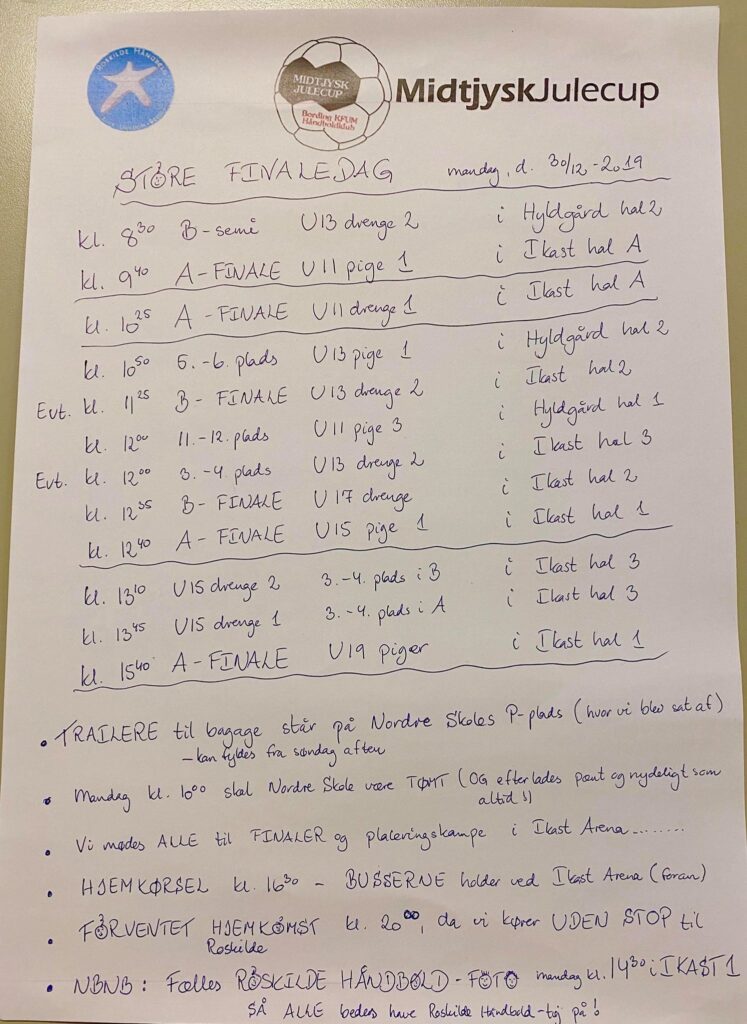 ROSKILDE HÅNDBOLD
MIDTJYSK
JULECUP
Bording KFUM
Håndboldklub
MidtjyskJulecup
STORE FINALEDAG mandag, d. 30/12-2019
kl. 8³⁰ B-semi U13 drenge 2 i Hyldgård hal 2
kl. 9⁴⁰ A-FINALE U11 pige 1 i Ikast hal A
kl. 10²⁵ A-FINALE U11 drenge 1 i Ikast hal A
kl. 10⁵⁰ 5.-6. plads U13 pige 1 i Hyldgård hal 2
Evt. kl. 11²⁵ B-FINALE U13 drenge 2 i Ikast hal 2
kl. 12⁰⁰ 11.-12. plads U11 pige 3 i Hyldgård hal 1
Evt. kl. 12⁰⁰ 3.-4. plads U13 drenge 2 i Ikast hal 3
kl. 12³⁵ B-FINALE U17 drenge i Ikast hal 2
kl. 12⁴⁰ A-FINALE U15 pige 1 i Ikast hal 1
kl. 13¹⁰ U15 drenge 2 3.-4. plads i B i Ikast hal 3
kl. 13⁴⁵ U15 drenge 1 3.-4. plads i A i Ikast hal 3
kl. 15⁴⁰ A-FINALE U19 piger i Ikast hal 1
• TRAILERE til bagage står på Nordre Skoles P-plads (hvor vi blev sat af)
- kan fyldes fra søndag aften
• Mandag kl. 10⁰⁰ skal Nordre Skole være TØMT (OG efterlades pænt og nydeligt som
altid !)
• Vi mødes ALLE til FINALER og placeringskampe i Ikast Arena........
• HJEMKØRSEL kl. 16³⁰ - BUSSERNE holder ved Ikast Arena (foran)
• FORVENTET HJEMKOMST kl. 20⁰⁰, da vi kører UDEN STOP til
Roskilde
• NBNB: Fælles ROSKILDE HÅNDBOLD-FOTO mandag kl. 14³⁰ i IKAST 1
SÅ ALLE bedes have Roskilde Håndbold-tøj på!